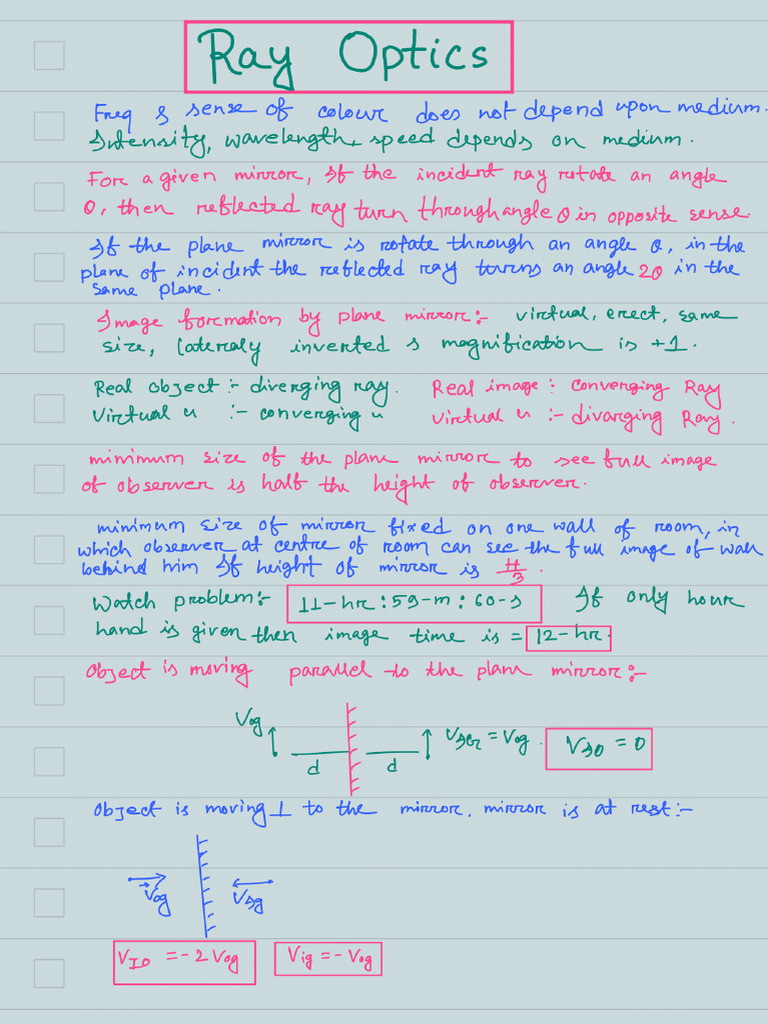 Ray Optics
Freq & sense of colour does not depend upon medium.
Intensity, wavelength, speed depends on medium.
For a given mirror, If the incident ray rotate an angle
θ, then reflected ray turn through angle θ in opposite sense.
If the plane mirror is rotate through an angle θ, in the
plane of incident the reflected ray turns an angle 2θ in the
same plane.
Image formation by plane mirror:- virtual, erect, same
size, lateraly inverted & magnification is +1.
Real object :- diverging ray. Real image :- converging Ray
Virtual u :- converging u virtual u :- divarging Ray.
minimum size of the plane mirror to see full image
of observer is half the height of observer.
minimum size of mirror fixed on one wall of room, in
which observer at centre of room can see the full image of wall
behind him If height of mirror is H/3.
Watch problem:- 11-hr : 59-m : 60-s If only hour
hand is given then image time is = 12-hr.
Object is moving parallel to the plane mirror:-
Vog
VIG = Vog. VIO = 0
d d
Object is moving ⊥ to the mirror. mirror is at rest:-
Vog VIg
VIO = -2 Vog Vig = - Vog